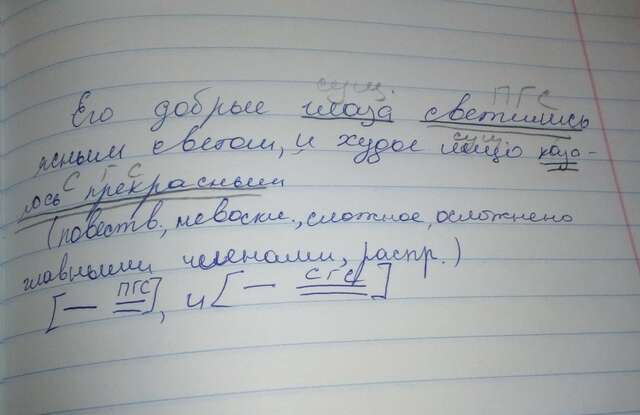 сущ. ПГС
Его добрые глаза светились
ясным светом, и худое лицо каза-
сущ.
лось прекрасным
С Г С
(повеств., невоскл., сложное, осложнено
главными членами, распр.)
[— ПГС], и [— СГС]